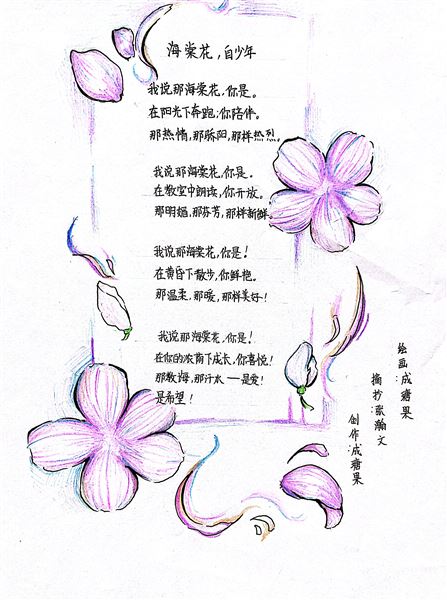 海棠花，自少年
我说那海棠花，你是。
在阳光下奔跑，你陪伴。
那热情，那骄阳，那样热烈。
我说那海棠花，你是。
在教室中朗读，你开放。
那明媚，那芬芳，那样新鲜。
我说那海棠花，你是！
在黄昏下散步，你鲜艳。
那温柔，那暖，那样美好！
我说那海棠花，你是！
在你的浓荫下成长，你喜悦！
那教诲，那汗水——是爱！
是希望！
绘画：成瑭果
摘抄：张瀚文
创作：成瑭果